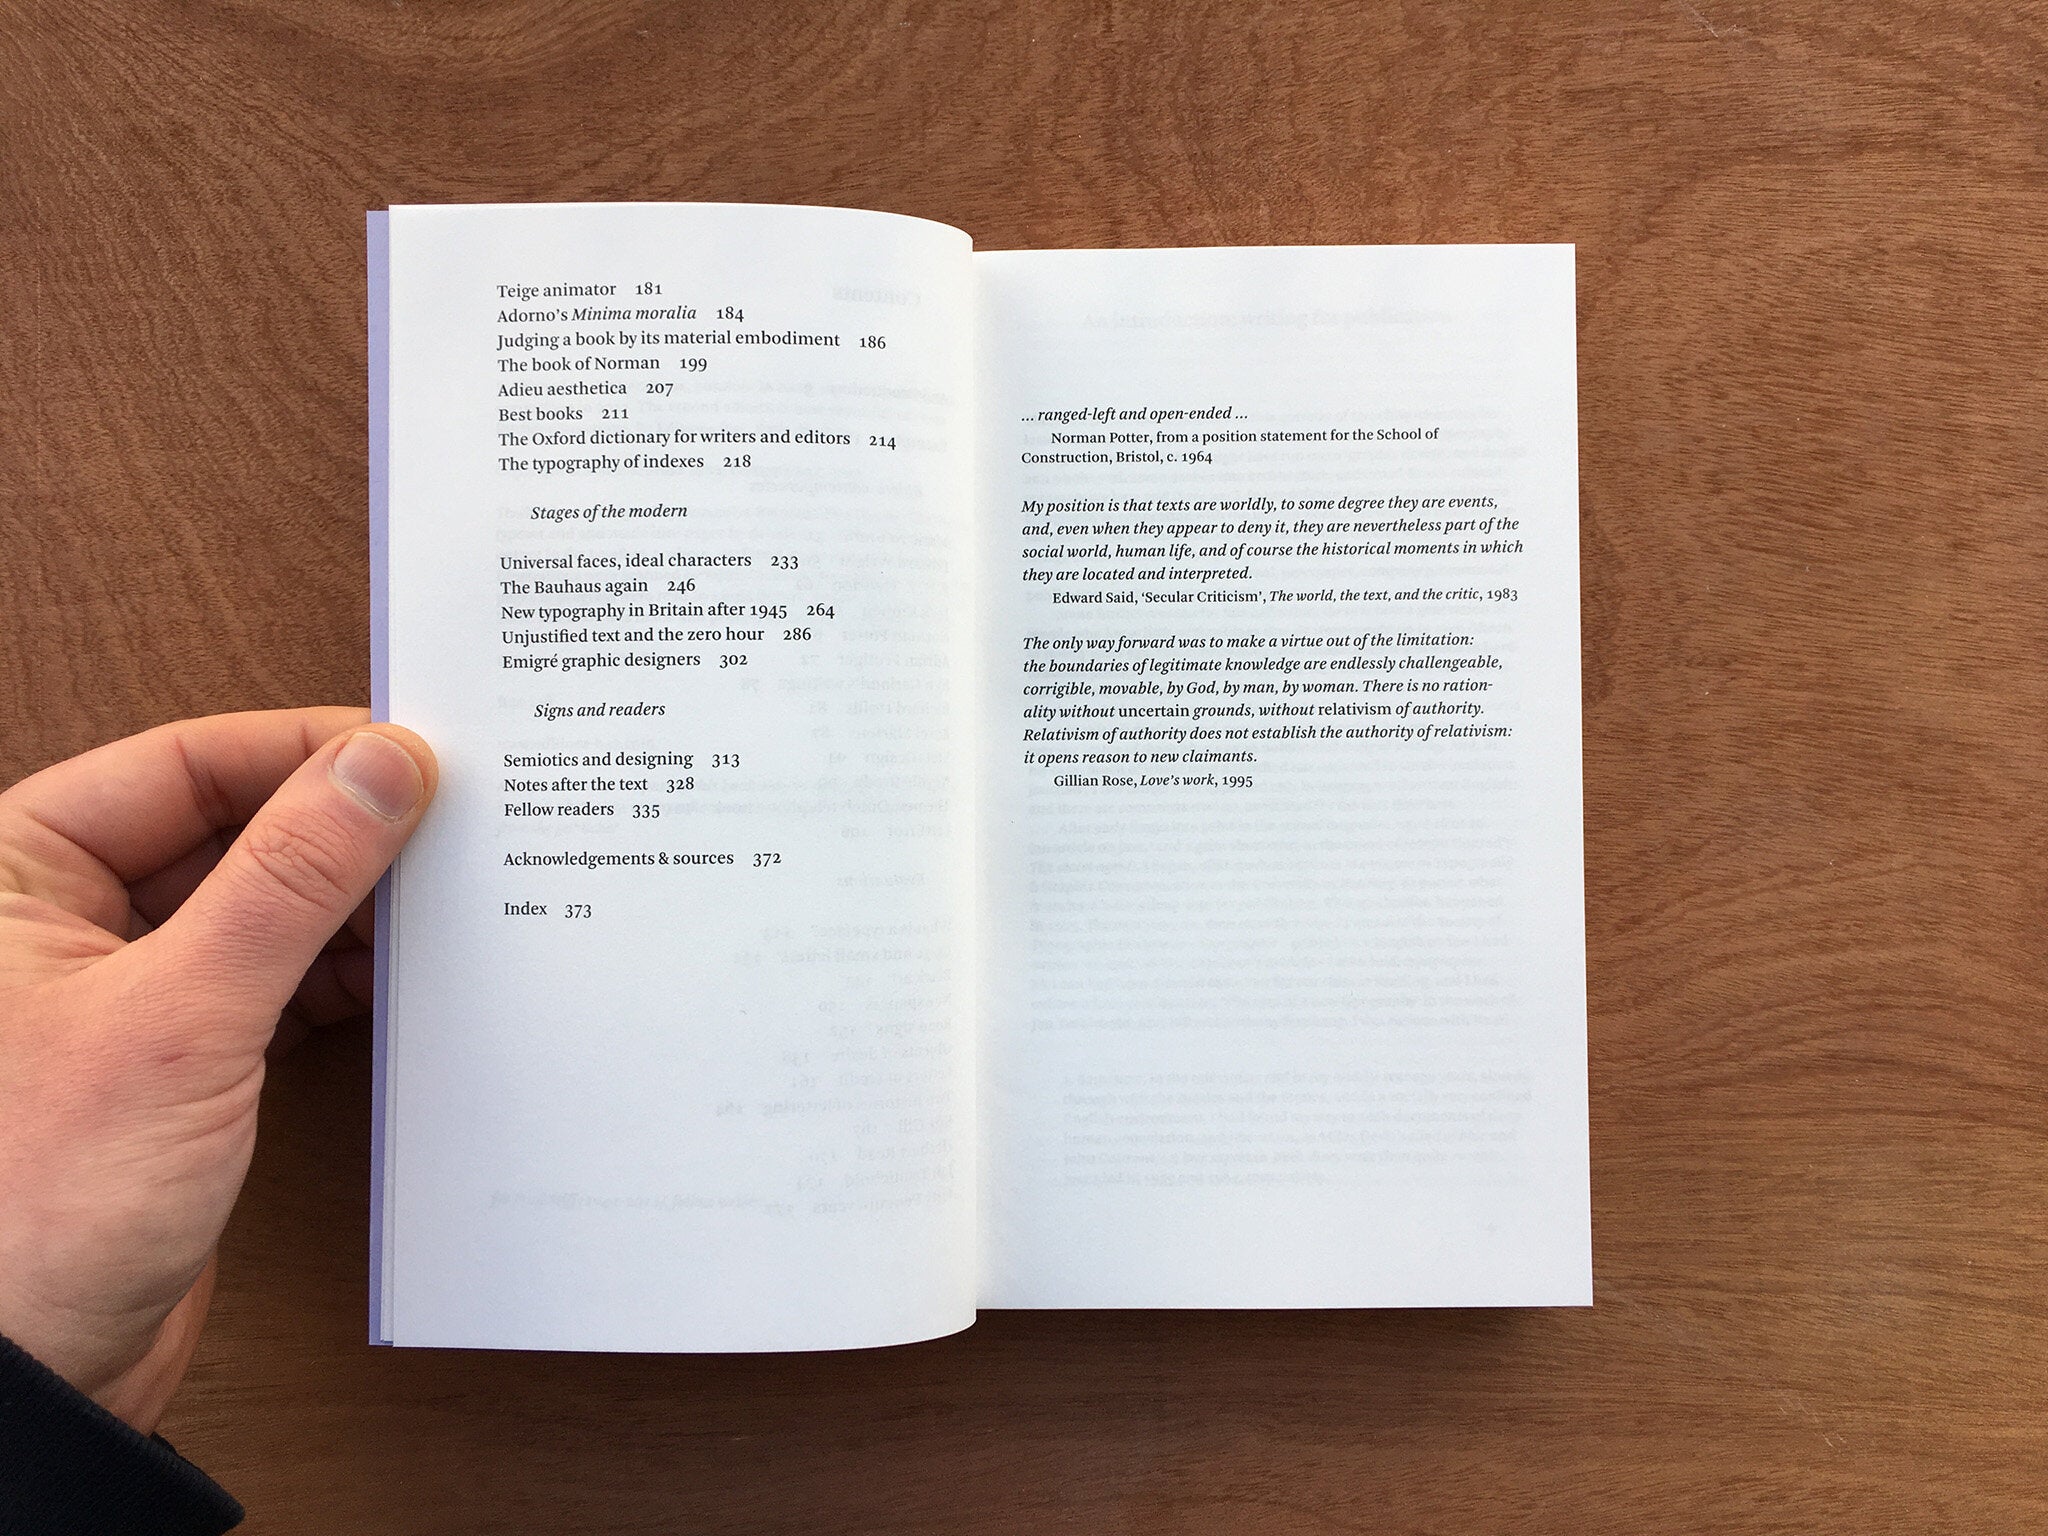 Teige animator 181
Adorno's Minima moralia 184
Judging a book by its material embodiment 186
The book of Norman 199
Adieu aesthetica 207
Best books 211
The Oxford dictionary for writers and editors 214
The typography of indexes 218
Stages of the modern
Universal faces, ideal characters 233
The Bauhaus again 246
New typography in Britain after 1945 264
Unjustified text and the zero hour 286
Emigré graphic designers 302
Signs and readers
Semiotics and designing 313
Notes after the text 328
Fellow readers 335
Acknowledgements & sources 372
Index 373
... ranged-left and open-ended ...
Norman Potter, from a position statement for the School of
Construction, Bristol, c. 1964
My position is that texts are worldly, to some degree they are events,
and, even when they appear to deny it, they are nevertheless part of the
social world, human life, and of course the historical moments in which
they are located and interpreted.
Edward Said, ‘Secular Criticism’, The world, the text, and the critic, 1983
The only way forward was to make a virtue out of the limitation:
the boundaries of legitimate knowledge are endlessly challengeable,
corrigible, movable, by God, by man, by woman. There is no ration-
ality without uncertain grounds, without relativism of authority.
Relativism of authority does not establish the authority of relativism:
it opens reason to new claimants.
Gillian Rose, Love's work, 1995